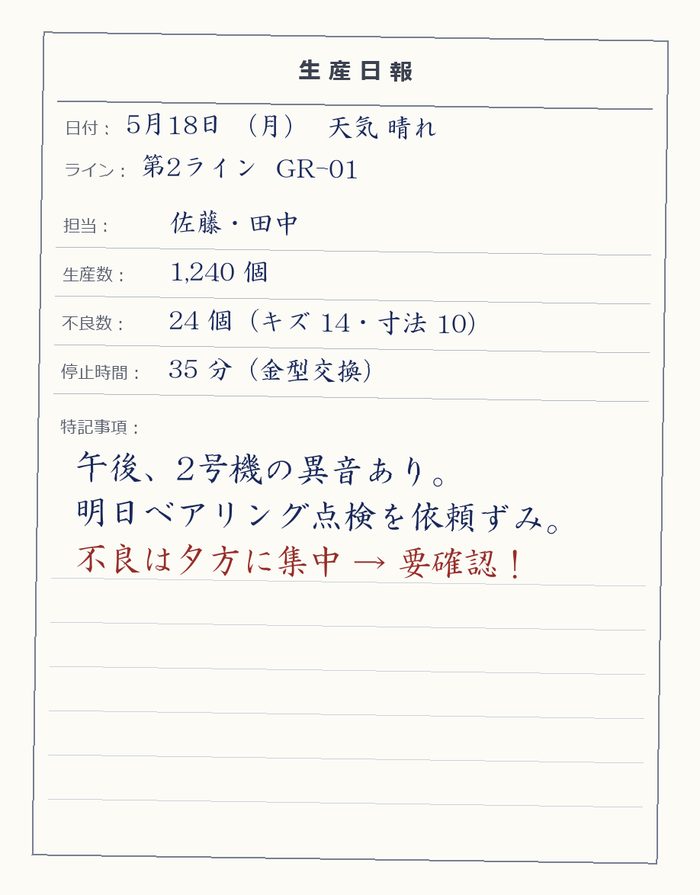 生産日報
日付： 5月18日 （月） 天気 晴れ
ライン： 第2ライン GR-01
担当： 佐藤・田中
生産数： 1,240 個
不良数： 24 個（キズ 14・寸法 10）
停止時間： 35 分（金型交換）
特記事項：
午後、2号機の異音あり。
明日ベアリング点検を依頼ずみ。
不良は夕方に集中 → 要確認！